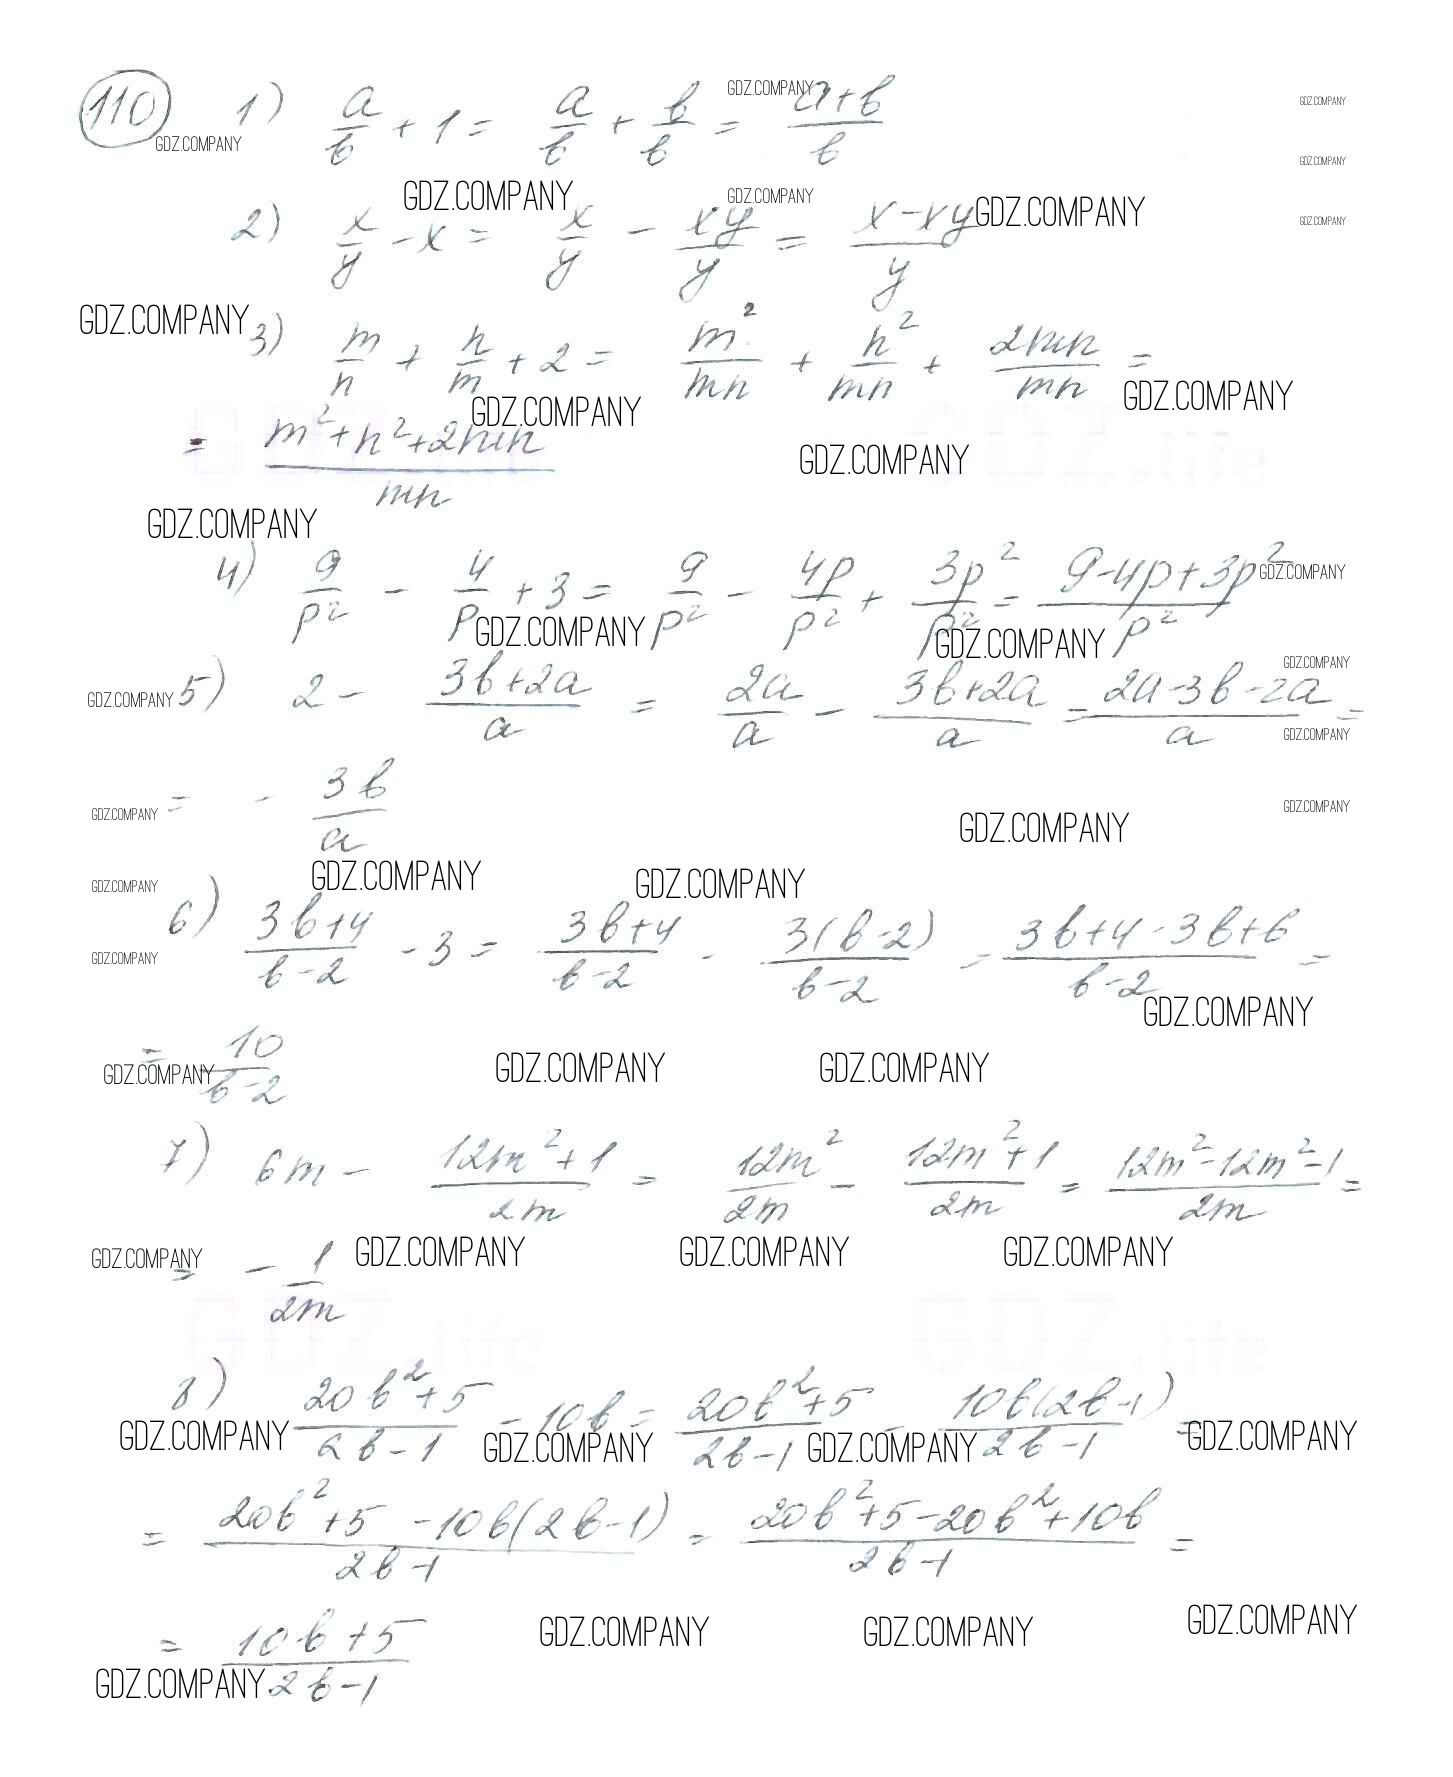 110 1) a/b + 1 = a/b + b/b = (a+b)/b
2) x/y - x = x/y - xy/y = (x-xy)/y
3) m/n + n/m + 2 = m²/mn + n²/mn + 2mn/mn =
= (m²+n²+2mn)/mn
4) 9/p² - 4/p + 3 = 9/p² - 4p/p² + 3p²/p² = (9-4p+3p²)/p²
5) 2 - (3b+2a)/a = 2a/a - (3b+2a)/a = (2a-3b-2a)/a =
= - 3b/a
6) (3b+4)/(b-2) - 3 = (3b+4)/(b-2) - 3(b-2)/(b-2) = (3b+4-3b+6)/(b-2) =
= 10/(b-2)
7) 6m - (12m²+1)/2m = 12m²/2m - (12m²+1)/2m = (12m²-12m²-1)/2m =
= - 1/2m
8) (20b²+5)/(2b-1) - 10b = (20b²+5)/(2b-1) - 10b(2b-1)/(2b-1) =
= (20b²+5-10b(2b-1))/(2b-1) = (20b²+5-20b²+10b)/(2b-1) =
= (10b+5)/(2b-1)
GDZ.COMPANY
GDZ.life